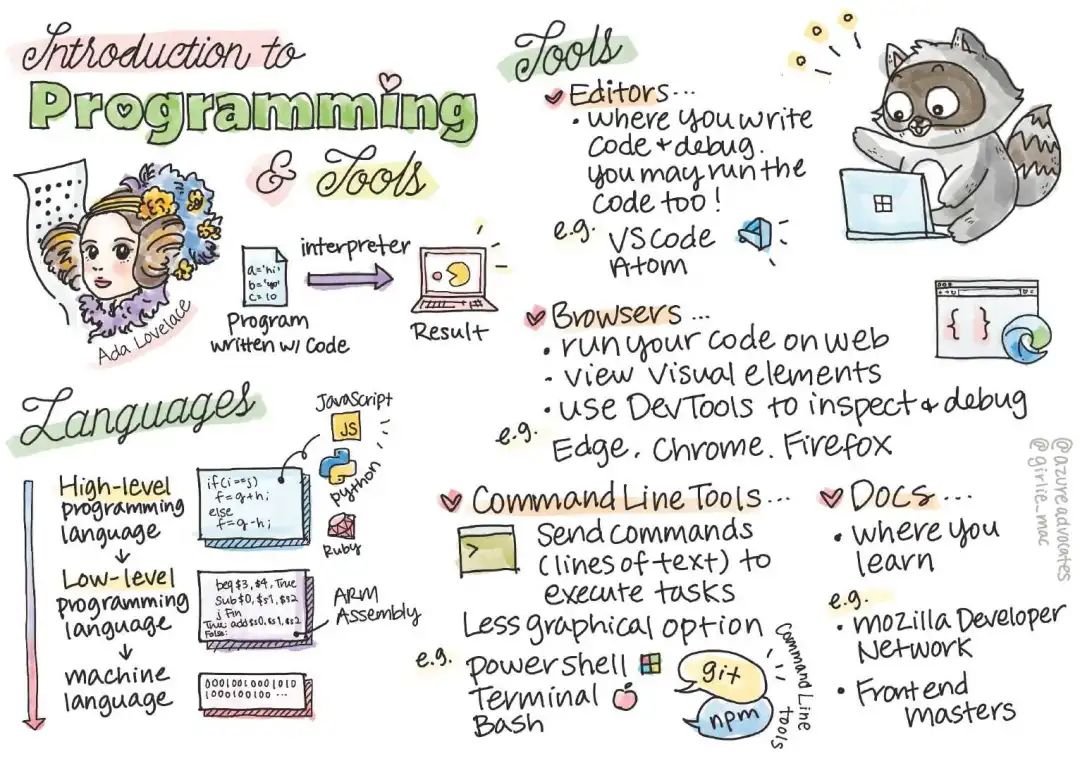 Introduction to
Programming
& Tools
Ada Lovelace
a='hi'
b='yo'
c=10
Program
written w/ Code
interpreter
Result
Languages
High-level
programming
language
Low-level
programming
language
machine
language
if(i==j)
f=g+h;
else
f=g-h;
JavaScript
JS
python
Ruby
beq $3,$4,True
Sub $0,$s1,$s2
j Fin
True: add $s0,$s1,$s2
False:
ARM
Assembly
00010010001010
1000100100 ...
Tools
Editors...
• where you write
code + debug.
you may run the
code too!
e.g. VS Code
Atom
Browsers ...
• run your code on web
• view visual elements
• use DevTools to inspect & debug
e.g.
Edge. Chrome. Firefox
{ }
Command Line Tools ...
>_
Send commands
(lines of text) to
execute tasks
Less graphical option
e.g. powershell
Terminal
Bash
git
npm
Command Line
tools
Docs ...
• where you
learn
e.g.
• mozilla Developer
Network
• Frontend
masters
@azureadvocates
@girlie_mac